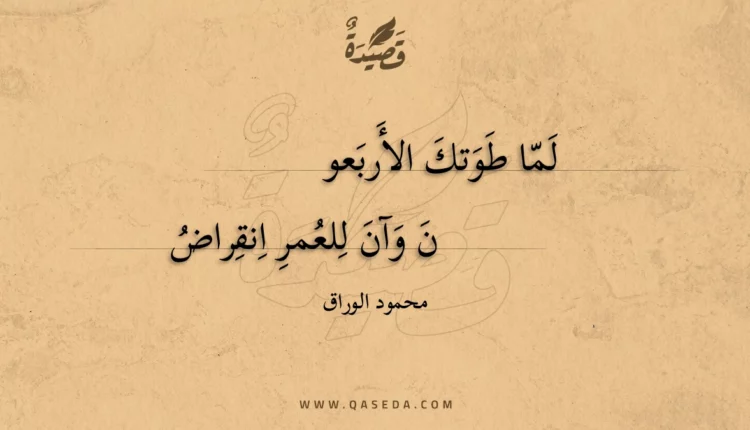 قَصِيْدَةٌ
لَمّا طَوَتكَ الأَربَعو
نَ وَآنَ لِلعُمرِ اِنقِراضُ
محمود الوراق
WWW.QASEDA.COM